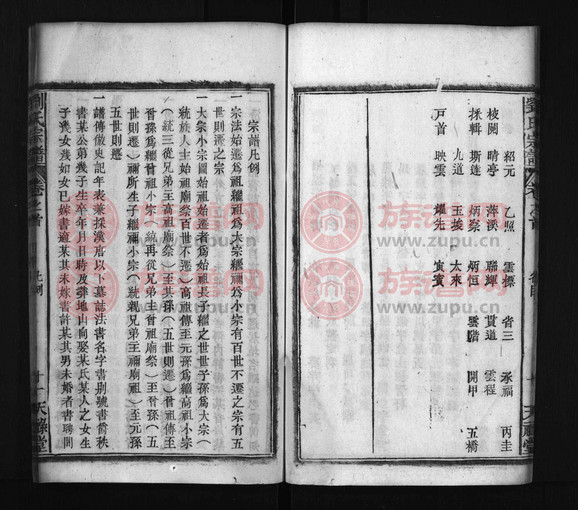 劉氏宗譜
卷之首
紹元 乙照 雲標 省三 永福 丙圭
校閱 晴亭 萍溪 聯輝 貫道 雲程
採輯 斯達 炳燊 炳恒 雲階 開甲 五橋
九道 玉振 太來
戶首 映雲 耀先 寅賓
天祿堂
宗譜凡例
一宗法始遷爲祖繼祖爲大宗繼禰爲小宗有百世不遷之宗有五
世則遷之宗
一大宗小宗圖始祖始遷者爲始祖長子繼之世世子孫爲大宗（
統族人主始祖廟祭百世不遷）高祖傳至元孫爲繼高祖小宗
（統三從兄弟主高祖廟祭）至其孫（五世則遷）曾祖傳至
曾孫爲繼曾祖小宗（統再從兄弟主曾祖廟祭）至曾孫（五
世則遷）禰所生子繼禰小宗（統親兄弟主禰廟祭）至元孫
五世則遷
一譜傳倣史記年表兼採漢唐以下墓誌法書名字書別號書爵秩
書某公第幾子生卒年月日時及葬地山向娶某氏某人之女生
子幾女幾如女已嫁書適某其未嫁書許某其男未婚者書聘問
劉氏宗譜
卷之首
凡例
十一
天祿堂
族譜网
www.zupu.cn
族譜网
www.zupu.cn
族譜网
www.zupu.cn
族譜网
www.zupu.cn